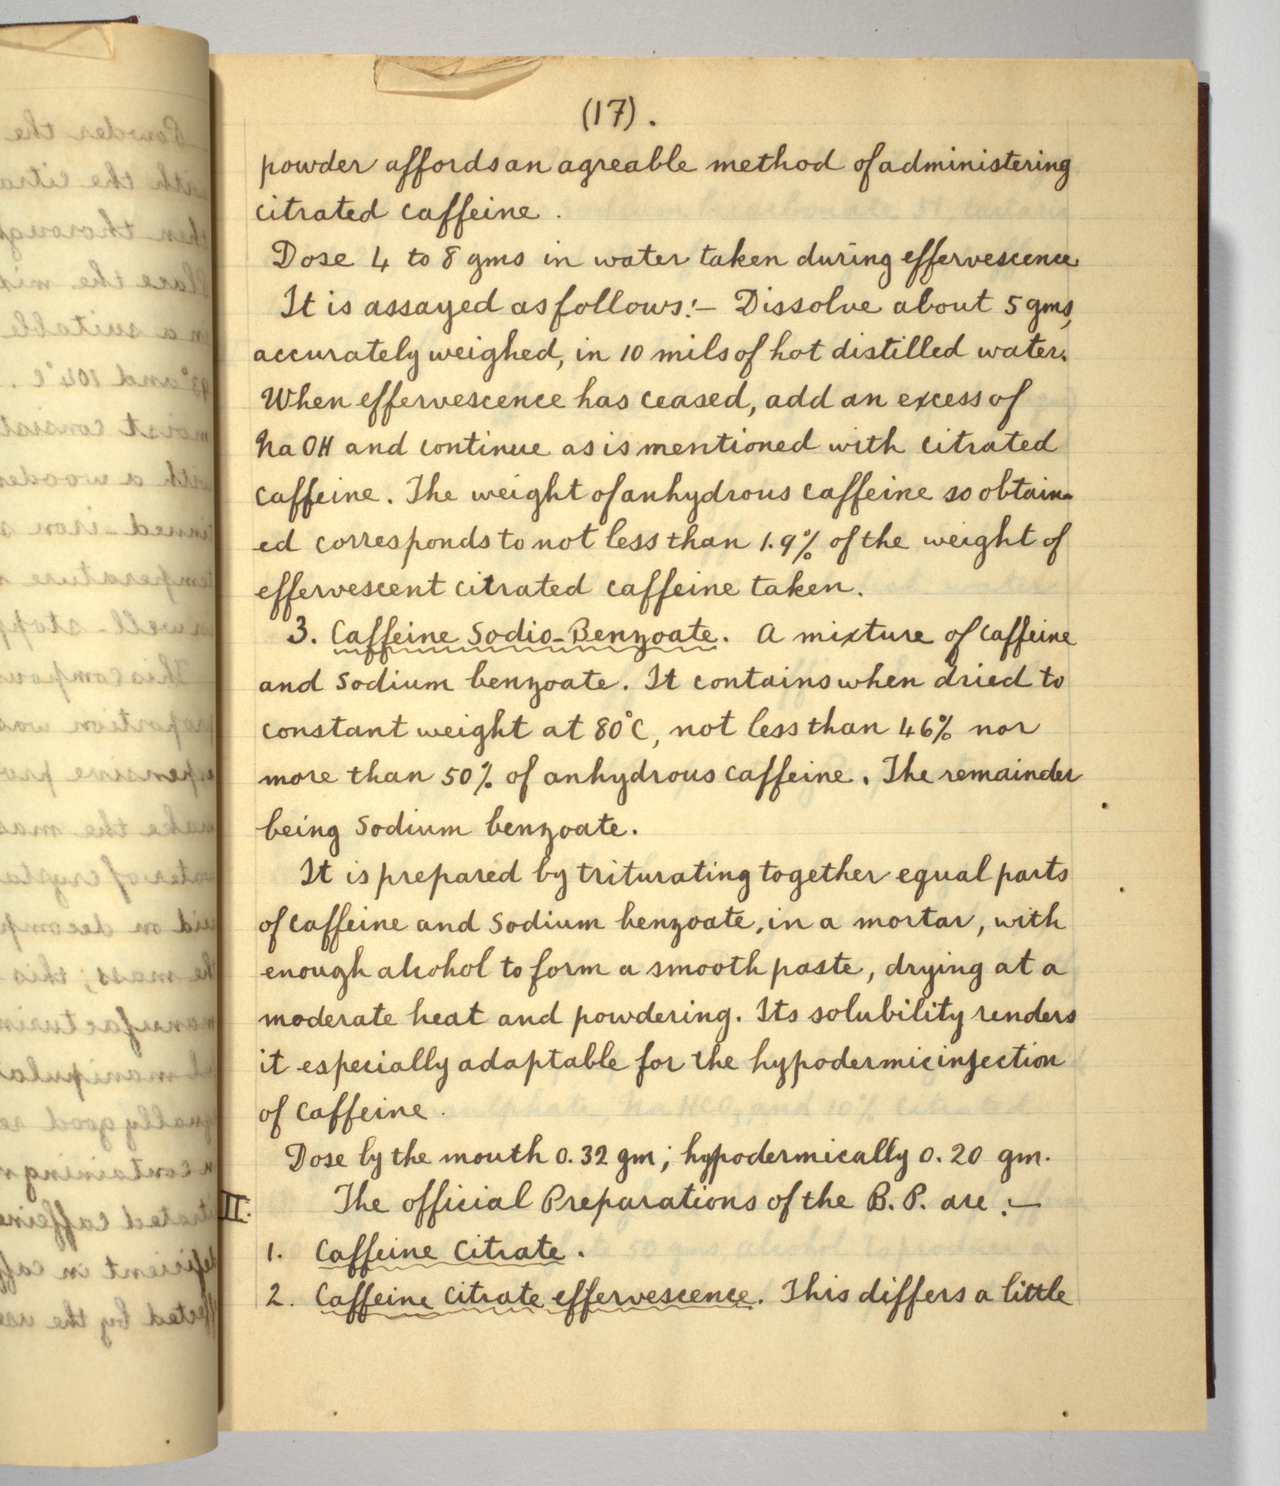 (17).
powder affords an agreable method of administering
citrated caffeine.
Dose 4 to 8 gms in water taken during effervescence
It is assayed as follows:— Dissolve about 5 gms,
accurately weighed, in 10 mils of hot distilled water.
When effervescence has ceased, add an excess of
NaOH and continue as is mentioned with citrated
caffeine. The weight of anhydrous caffeine so obtain-
ed corresponds to not less than 1.9% of the weight of
effervescent citrated caffeine taken.
3. Caffeine Sodio-Benzoate. A mixture of caffeine
and Sodium benzoate. It contains when dried to
constant weight at 80°C, not less than 46% nor
more than 50% of anhydrous caffeine. The remainder
being Sodium benzoate.
It is prepared by triturating together equal parts
of caffeine and Sodium benzoate, in a mortar, with
enough alcohol to form a smooth paste, drying at a
moderate heat and powdering. Its solubility renders
it especially adaptable for the hypodermic injection
of caffeine.
Dose by the mouth 0.32 gm; hypodermically 0.20 gm.
II. The official Preparations of the B.P. are:—
1. Caffeine Citrate.
2. Caffeine Citrate effervescence. This differs a little